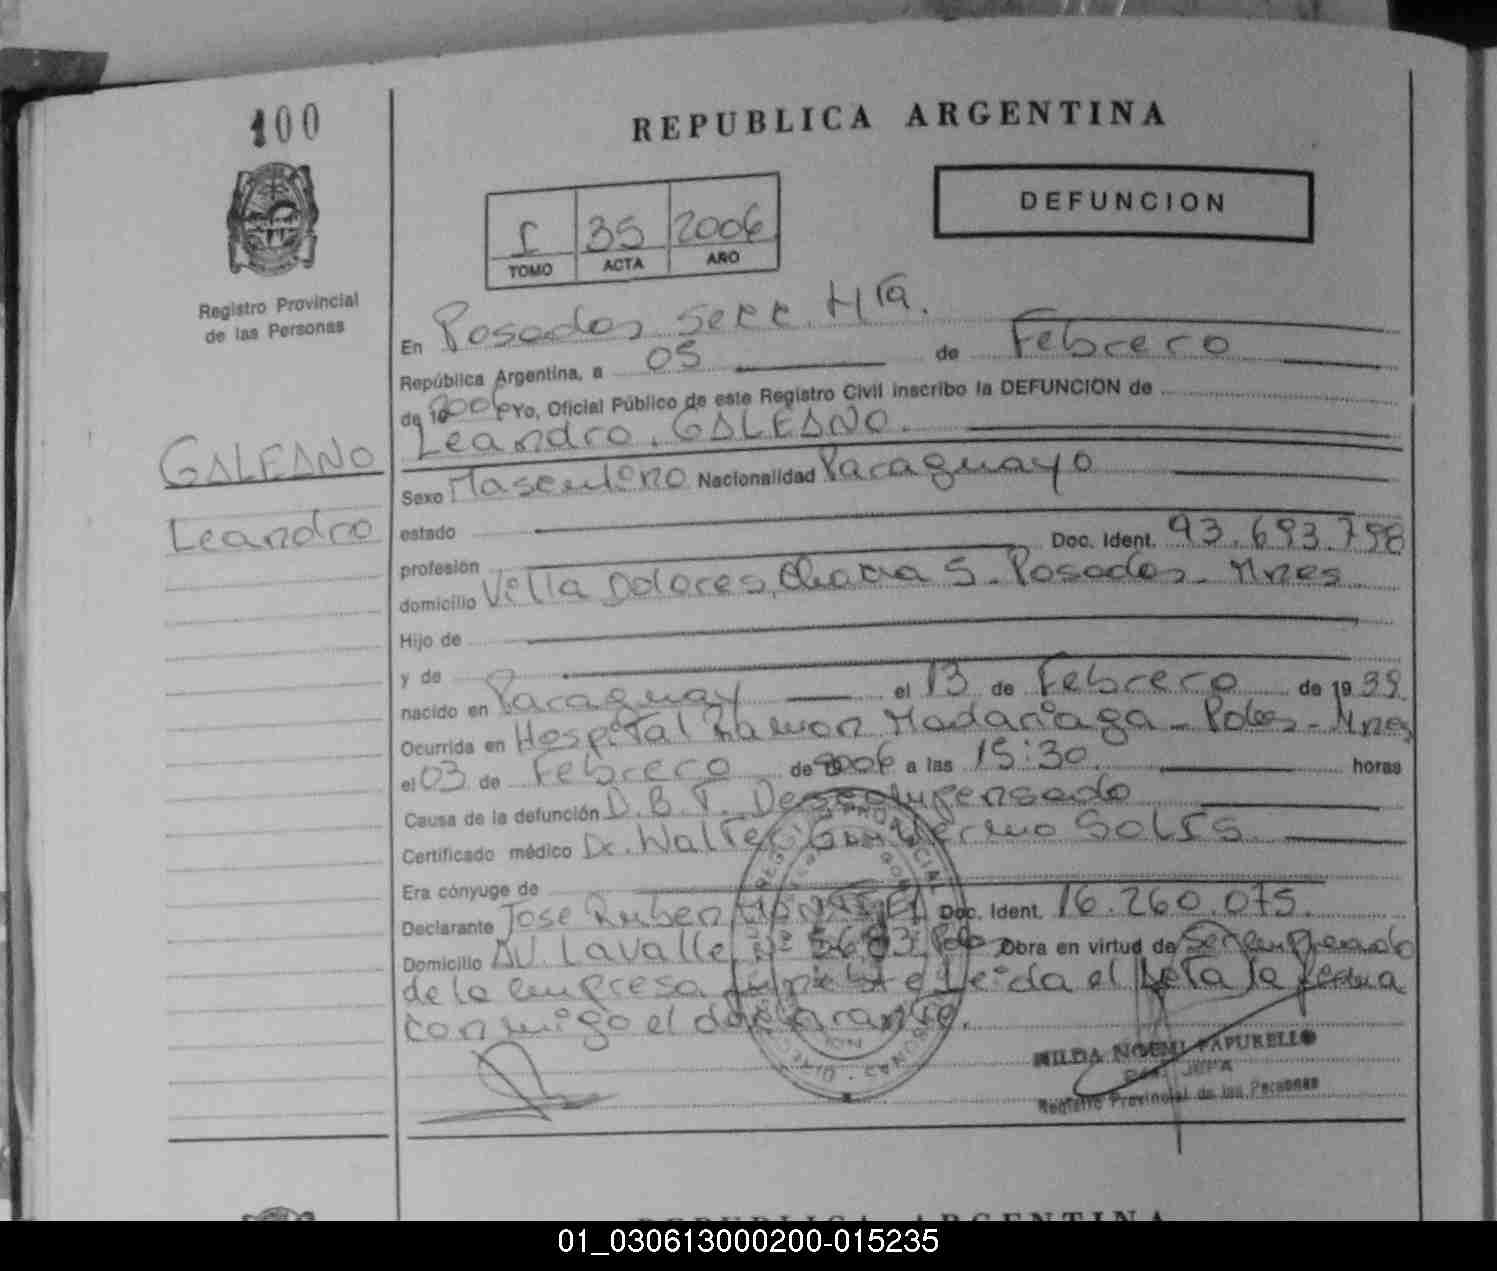 100
REPUBLICA ARGENTINA
DEFUNCION
I 35 2006
TOMO ACTA AÑO
Registro Provincial
de las Personas
En Posadas Secc. Hra.
República Argentina, a 05 de Febrero
de 19 2006 Yo, Oficial Público de este Registro Civil inscribo la DEFUNCION de
Leandro. GALEANO.
GALEANO
Leandro
Sexo Masculino Nacionalidad Paraguayo
estado
profesión Doc. Ident. 93.693.798
domicilio Villa Dolores, Chacra 5. Posadas. Mnes
Hijo de
y de
nacido en Paraguay el 13 de Febrero de 19 39
Ocurrida en Hospital Ramon Madariaga - Pdas - Mnes
el 03 de Febrero de 2006 a las 15:30 horas
Causa de la defunción D.B.T. Descompensado
Certificado médico Dr. Walter Guillermo SOLIS
Era cónyuge de
Declarante Jose Ruben Doc. Ident. 16.260.075.
Domicilio AV. Lavalle Nº 5683 Pdas Obra en virtud de ser empleado
de la empresa Leida el Acta la firma
conmigo el declarante.
HILDA NOEMI PAPURELLO
JEFA
Registro Provincial de las Personas
REPUBLICA ARGENTINA
01_030613000200-015235